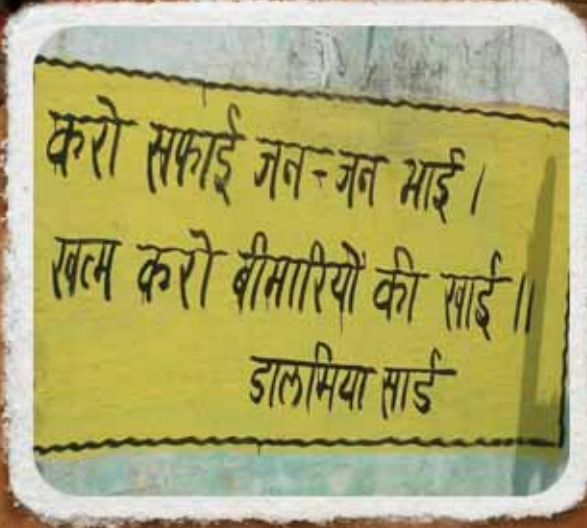 करो सफाई जन-जन भाई।
खत्म करो बीमारियों की खाई॥
डालमिया सार्ड